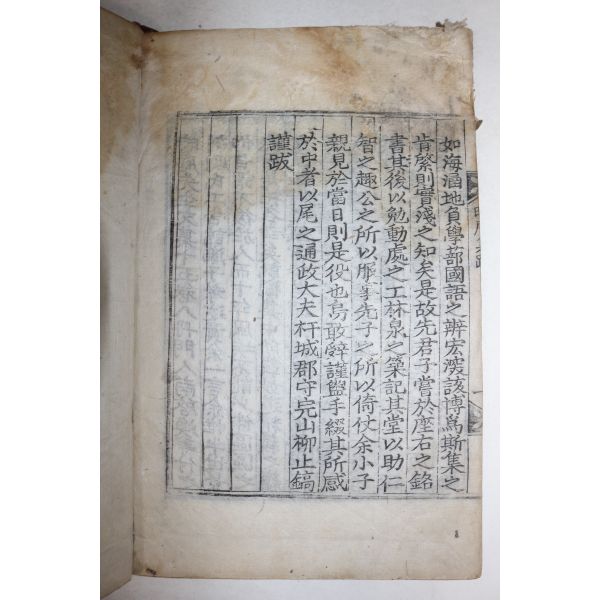 如海涵地負學蔀國語之辨宏深該博爲斯集之
肯綮則實殘之知矣是故先君子嘗於座右之銘
書其後以勉動處之工林泉之築記其堂以助仁
智之趣公之所以先子之所以倚仗余小子
親見於當日則是役也烏敢辭謹盥手綴其所感
於中者以尾之通政大夫杆城郡守完山柳止鎬
謹跋